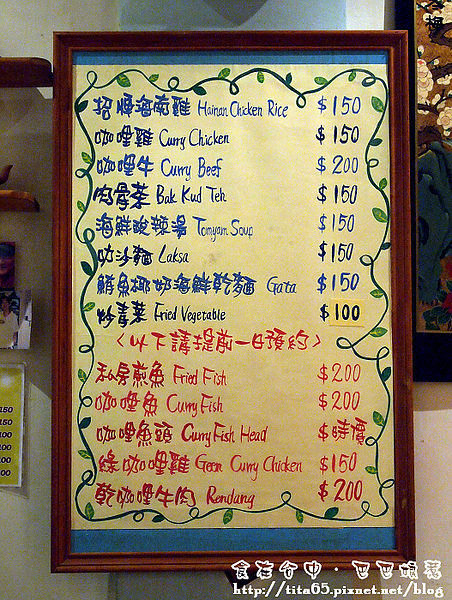 招牌海南雞 Hainan Chicken Rice $150
咖哩雞 Curry Chicken $150
咖哩牛 Curry Beef $200
肉骨茶 Bak Kud Teh $150
海鮮酸辣湯 Tomyam Soup $150
叻沙麵 Laksa $150
鯖魚椰奶海鮮乾麵 Gata $150
炒青菜 Fried Vegetable $100
〈以下請提前一日預約〉
私房煎魚 Fried Fish $200
咖哩魚 Curry Fish $200
咖哩魚頭 Curry Fish Head $時價
綠咖哩雞 Geen Curry Chicken $150
乾咖哩牛肉 Rendang $200
食在台中·巴巴娘惹
http://tita65.pixnet.net/blog